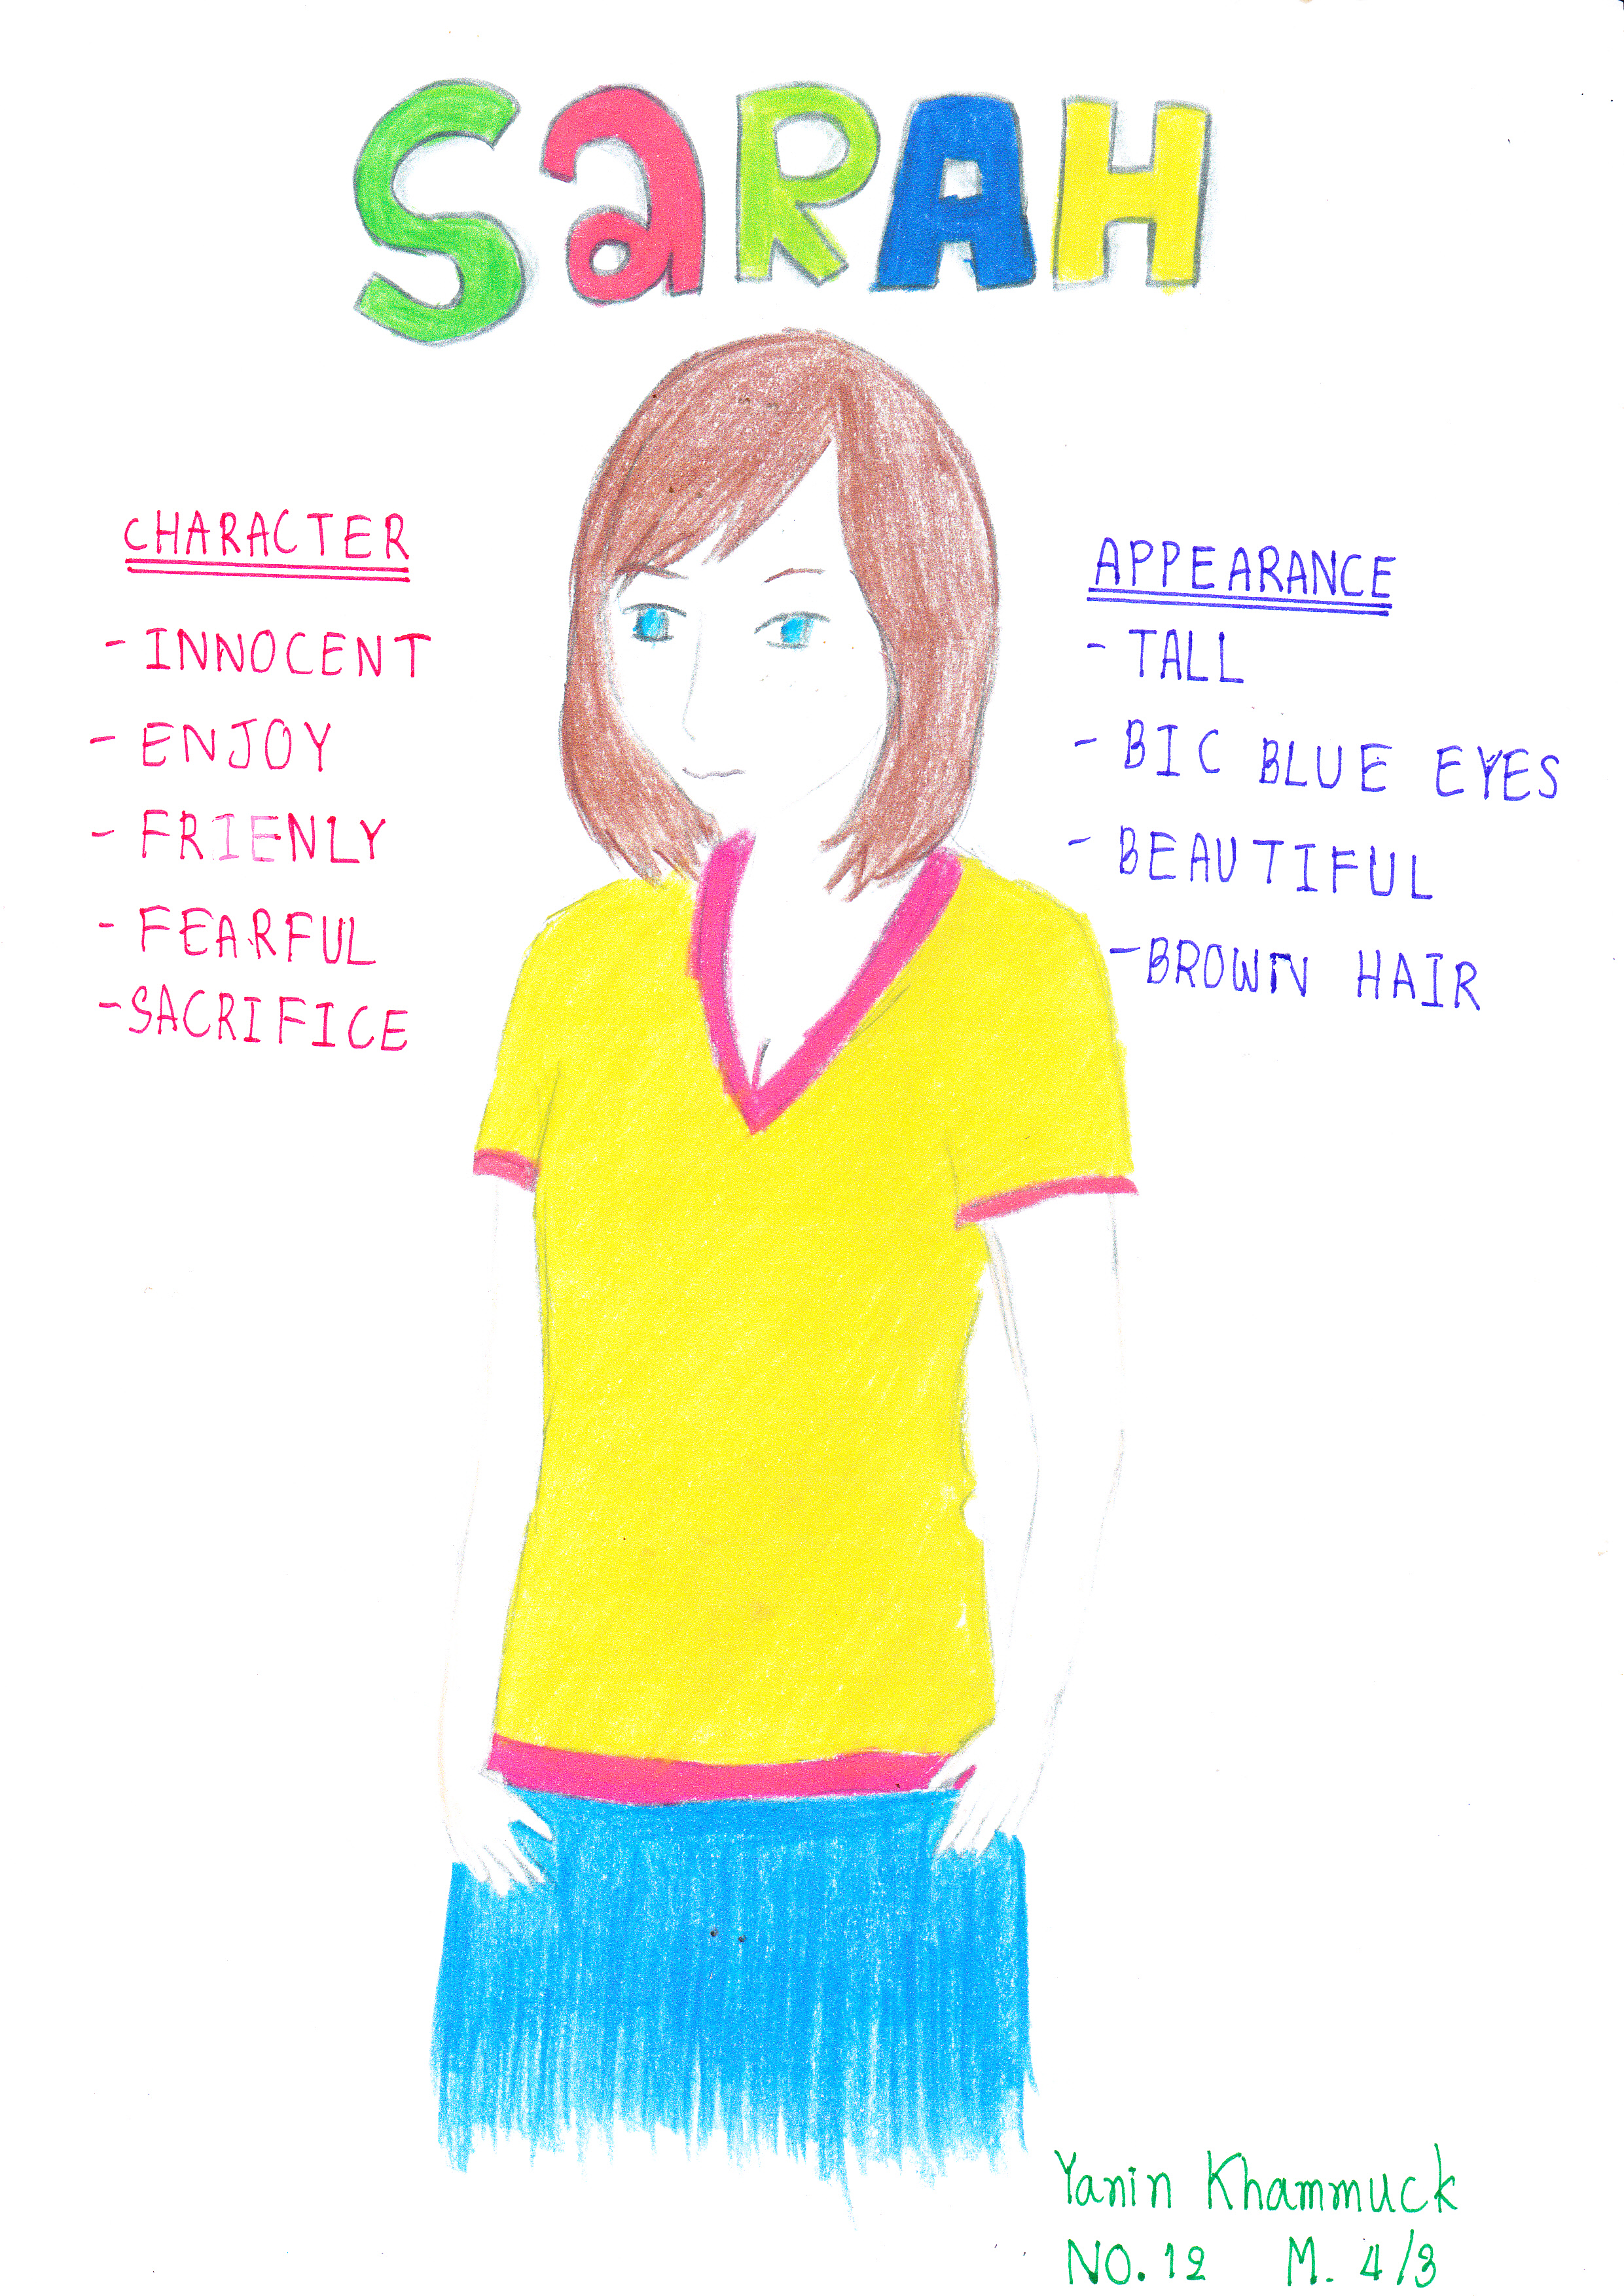 SaRAH
CHARACTER
- INNOCENT
- ENJOY
- FRIENLY
- FEARFUL
- SACRIFICE
APPEARANCE
- TALL
- BIC BLUE EYES
- BEAUTIFUL
- BROWN HAIR
Yanin Khammuck
NO. 12 M. 4/3